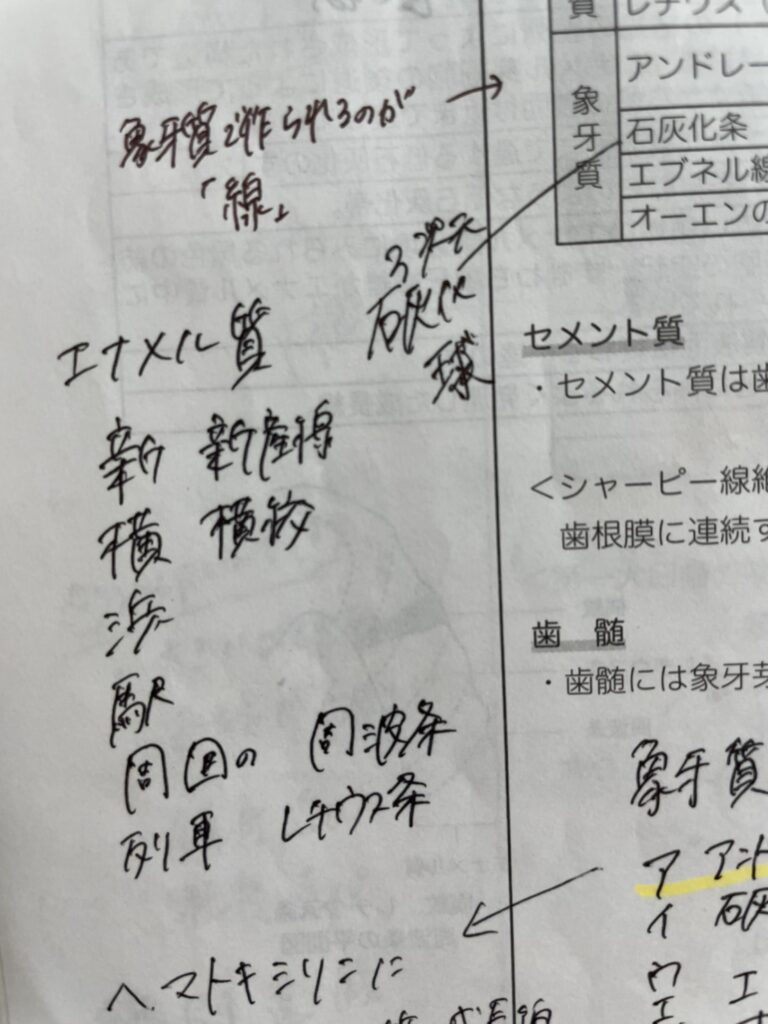 象牙質で作られるのが →
「線」
エナメル質
新 新産線
横 横紋
浜
駅
周囲の 周波条
列車 レチウス条
ヘマトキシリンに
3次元
石灰化
球
質 レチウス(
象牙質
アンドレー
石灰化条
エブネル線
オーエンの
セメント質
・セメント質は歯
<シャーピー線維
歯根膜に連続す
歯 髄
・歯髄には象牙芽
象牙質
ア アント
イ 石灰
ウ
エ エ